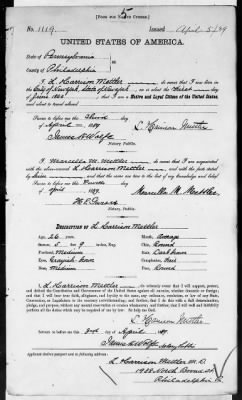 5
[FORM FOR NATIVE CITIZEN.]
No. 1119. Issued April 5/89
UNITED STATES OF AMERICA.
State of Pennsylvania
County of Philadelphia
I, L. Harrison Mettler, do swear that I was born in
the City of Newark, State of on the third
day of June 186 that I am a Native and Loyal Citizen of the United States,
and about to travel abroad
Sworn to before me this third
day of April 1889 L. Harrison Mettler
James H. Wolfe
Notary Public.
I, Marcellus M. Mettler, do swear that I am acquainted
with the above-named L. Harrison Mettler and with the facts stated
by him and that the same are true to the best of my knowledge and belief
Sworn to before me this
day of April 1889. Marcellus M. Mettler
Notary Public.
DESCRIPTION OF L. Harrison Mettler
Age, 26 years Mouth, Average
Stature, 5 feet 9 inches, Eng. Chin, Round
Forehead, Medium Hair, Dark
Eyes, Complexion,
Nose, Medium Face, Round
I, L. Harrison Mettler, do solemnly swear that I will support, protect,
and defend the Constitution and Government of the United States against all enemies, whether domestic or foreign;
and that I will bear true faith, allegiance, and loyalty to the same, any ordinance, resolution, or law of any State,
Convention, or Legislature to the contrary notwithstanding; and further, that I do this with a full determination,
pledge, and purpose, without any mental reservation or evasion whatsoever; and further, that I will well and faithfully
perform all the duties which may be required of me by law. So help me God.
L. Harrison Mettler
Sworn to before me this 3rd April 1889.
James H. Wolfe Notary Public
Applicant desires passport sent to following address:
L. Harrison Mettler M.D.
1928 North Broad St
Philadelphia Pa